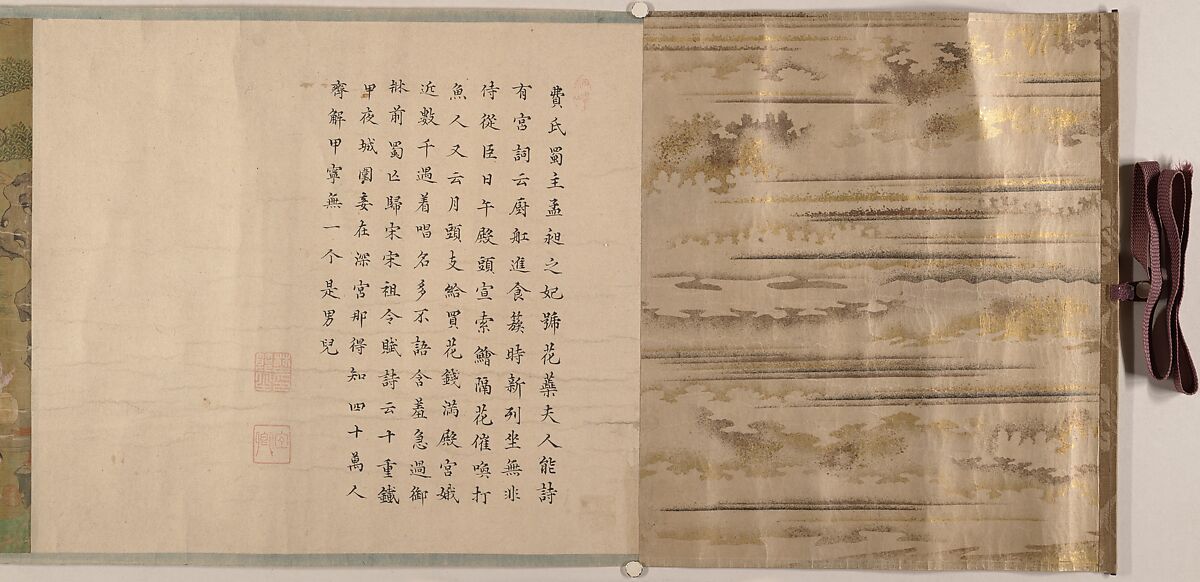 費氏蜀主孟昶之妃號花蘂夫人能詩
有宮詞云厨舡進食蔟時新列坐無非
侍從臣日午殿頭宣索鱠隔花催喚打
魚人又云月頭支給買花錢滿殿宮娥
近數千遇着唱名多不語含羞急過御
牀前蜀亡歸宋宋祖令賦詩云十重鐵
甲夜城闉妾在深宮那得知四十萬人
齊解甲寧無一个是男兒